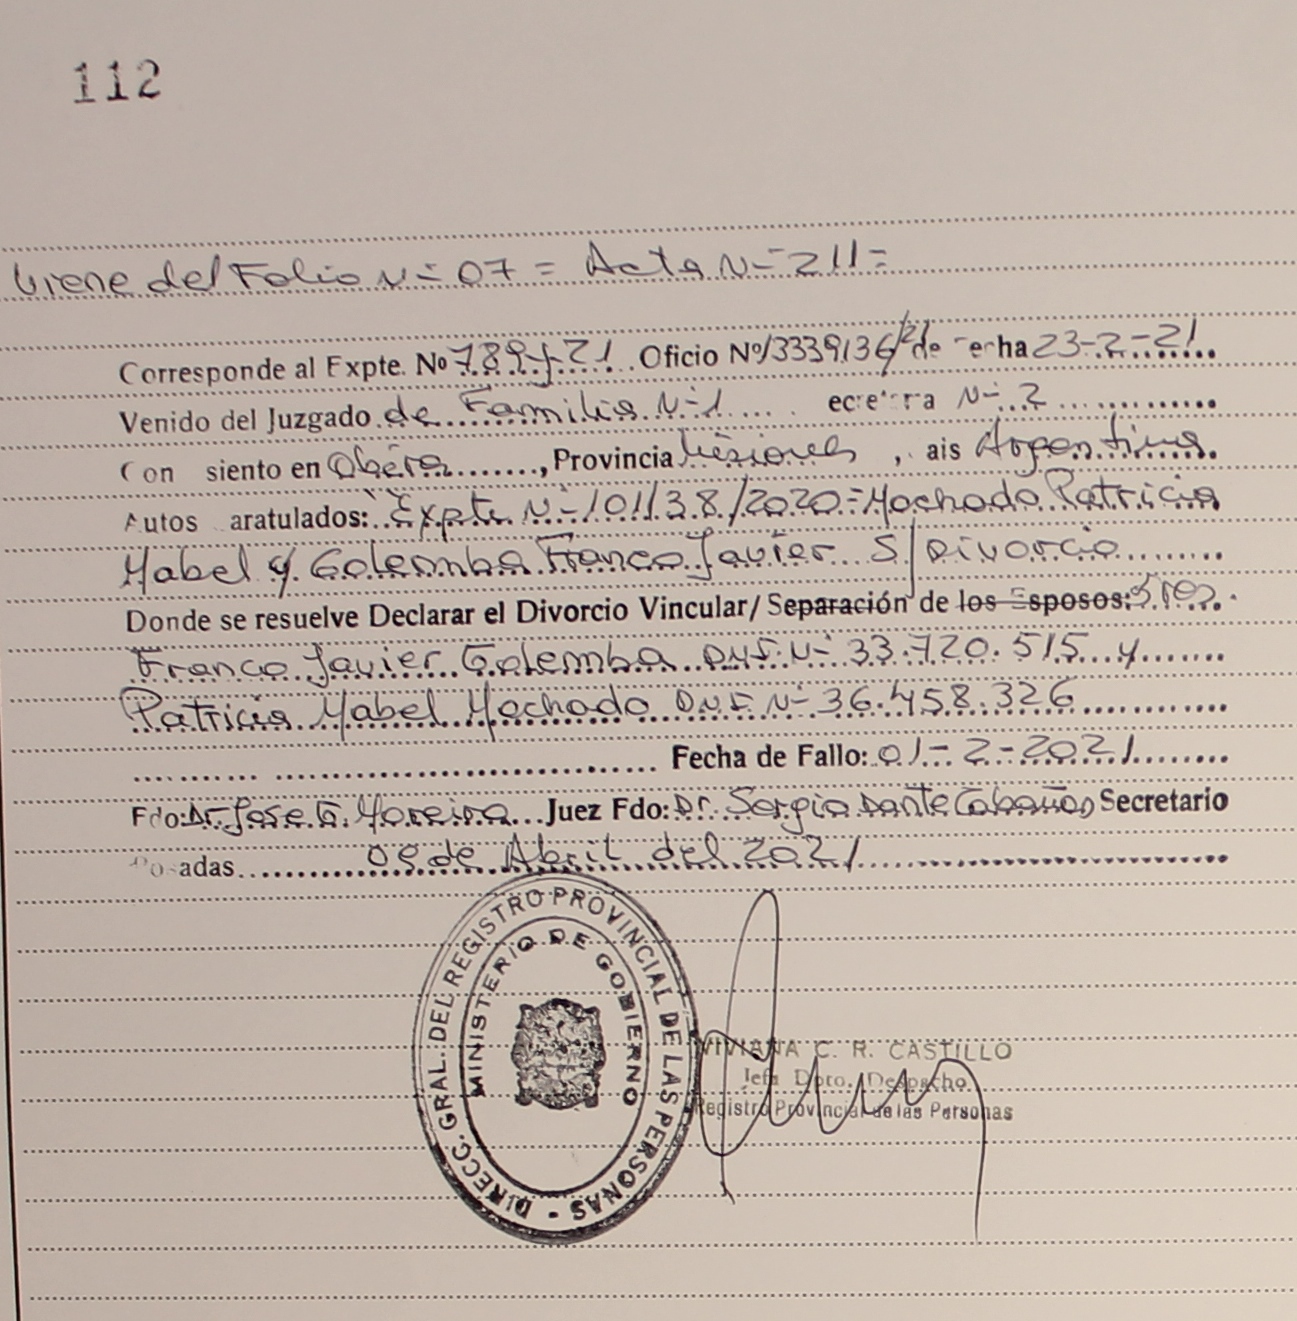 112
Viene del Folio N= 07 = Acta N= 211=
Corresponde al Expte. No 789-J-21 Oficio Nº 3339136/21 de fecha 23-2-21
Venido del Juzgado de Familia N=1 ecretara N=2
Con siento en Oberá, Provincia Misiones, ais Argentina
Autos aratulados: Expte N=101138/2020=Machado Patricia
Mabel y Golemba Franco Javier S/Divorcio
Donde se resuelve Declarar el Divorcio Vincular/ Separación de los Esposos: Sres.
Franco Javier Golemba DNI N= 33.720.515 y
Patricia Mabel Machado DNI N= 36.458.326
Fecha de Fallo: 01-2-2021
Fdo: Dr. Jose G. Moreira Juez Fdo: Dr. Sergio Dante Cabañas Secretario
Posadas 09 de Abril del 2021
DIRECC. GRAL. DEL REGISTRO PROVINCIAL DE LAS PERSONAS -
MINISTERIO DE GOBIERNO
VIVIANA C. R. CASTILLO
Jefa Dpto. Despacho
Registro Provincial de las Personas